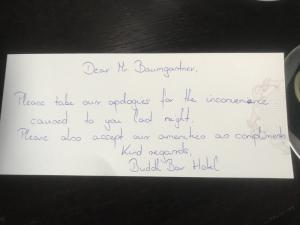 Dear Mr Baumgartner,
Please take our apologies for the inconvenience
caused to you last night.
Please also accept our amenities as compliments
Kind regards,
Buddha Bar Hotel